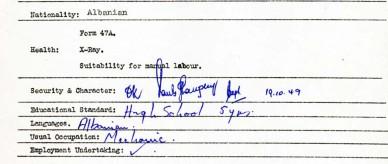 Nationality: Albanian
Form 47A.
Health: X-Ray.
Suitability for manual labour.
Security & Character: Ok 19.10.49
Educational Standard: High School 5 yrs.
Languages. Albanian.
Usual Occupation: Mechanic.
Employment Undertaking: ✓.